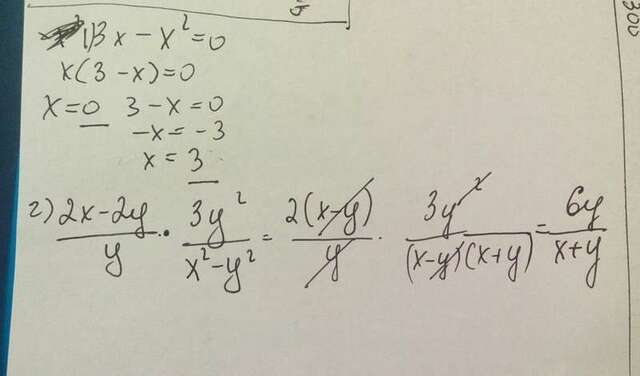 1) 3x - x² = 0
x(3 - x) = 0
x = 0 3 - x = 0
-x = -3
x = 3
2) (2x - 2y)/y · 3y²/(x² - y²) = 2(x - y)/y · 3y²/((x - y)(x + y)) = 6y/(x + y)
300